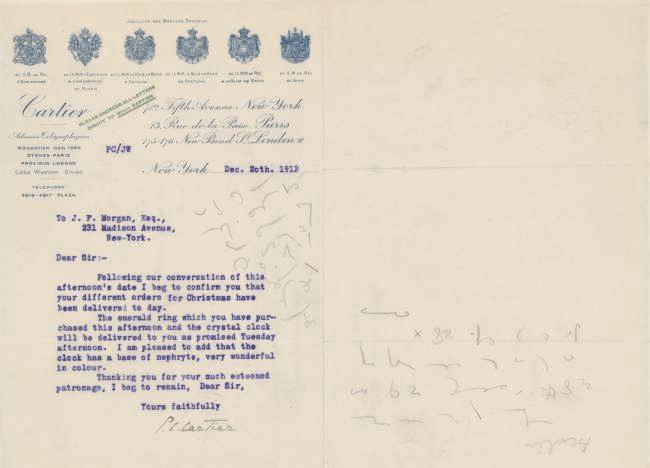 DE S.M. LE ROI
D'ANGLETERRE
DE RUSSIE
D'ESPAGNE
DE PORTUGAL
DE S.M. LE ROI
DE SIAM
Cartier
PLEASE ADDRESS ALL LETTERS
DIRECT TO MAIS CARTIER
712, Fifth Avenue New York
13, Rue de la Paix, Paris
175-176 New Bond St. London W
Adresses Télégraphiques
NEW YORK
STONES-PARIS
PRECIOUS LONDON
Code Western Union
TELEPHONE
PLAZA
PC/JW
New York Dec. 20th. 1913
To J. P. Morgan, Esq.,
231 Madison Avenue,
New-York.
Dear Sir:-
Following our conversation of this
afternoon's date I beg to confirm you that
your different orders for Christmas have
been delivered to day.
The emerald ring which you have pur-
chased this afternoon and the crystal clock
will be delivered to you as promised Tuesday
afternoon. I am pleased to add that the
clock has a base of nephryte, very wonderful
in colour.
Thanking you for your much esteemed
patronage, I beg to remain, Dear Sir,
Yours faithfully
P. C. Cartier